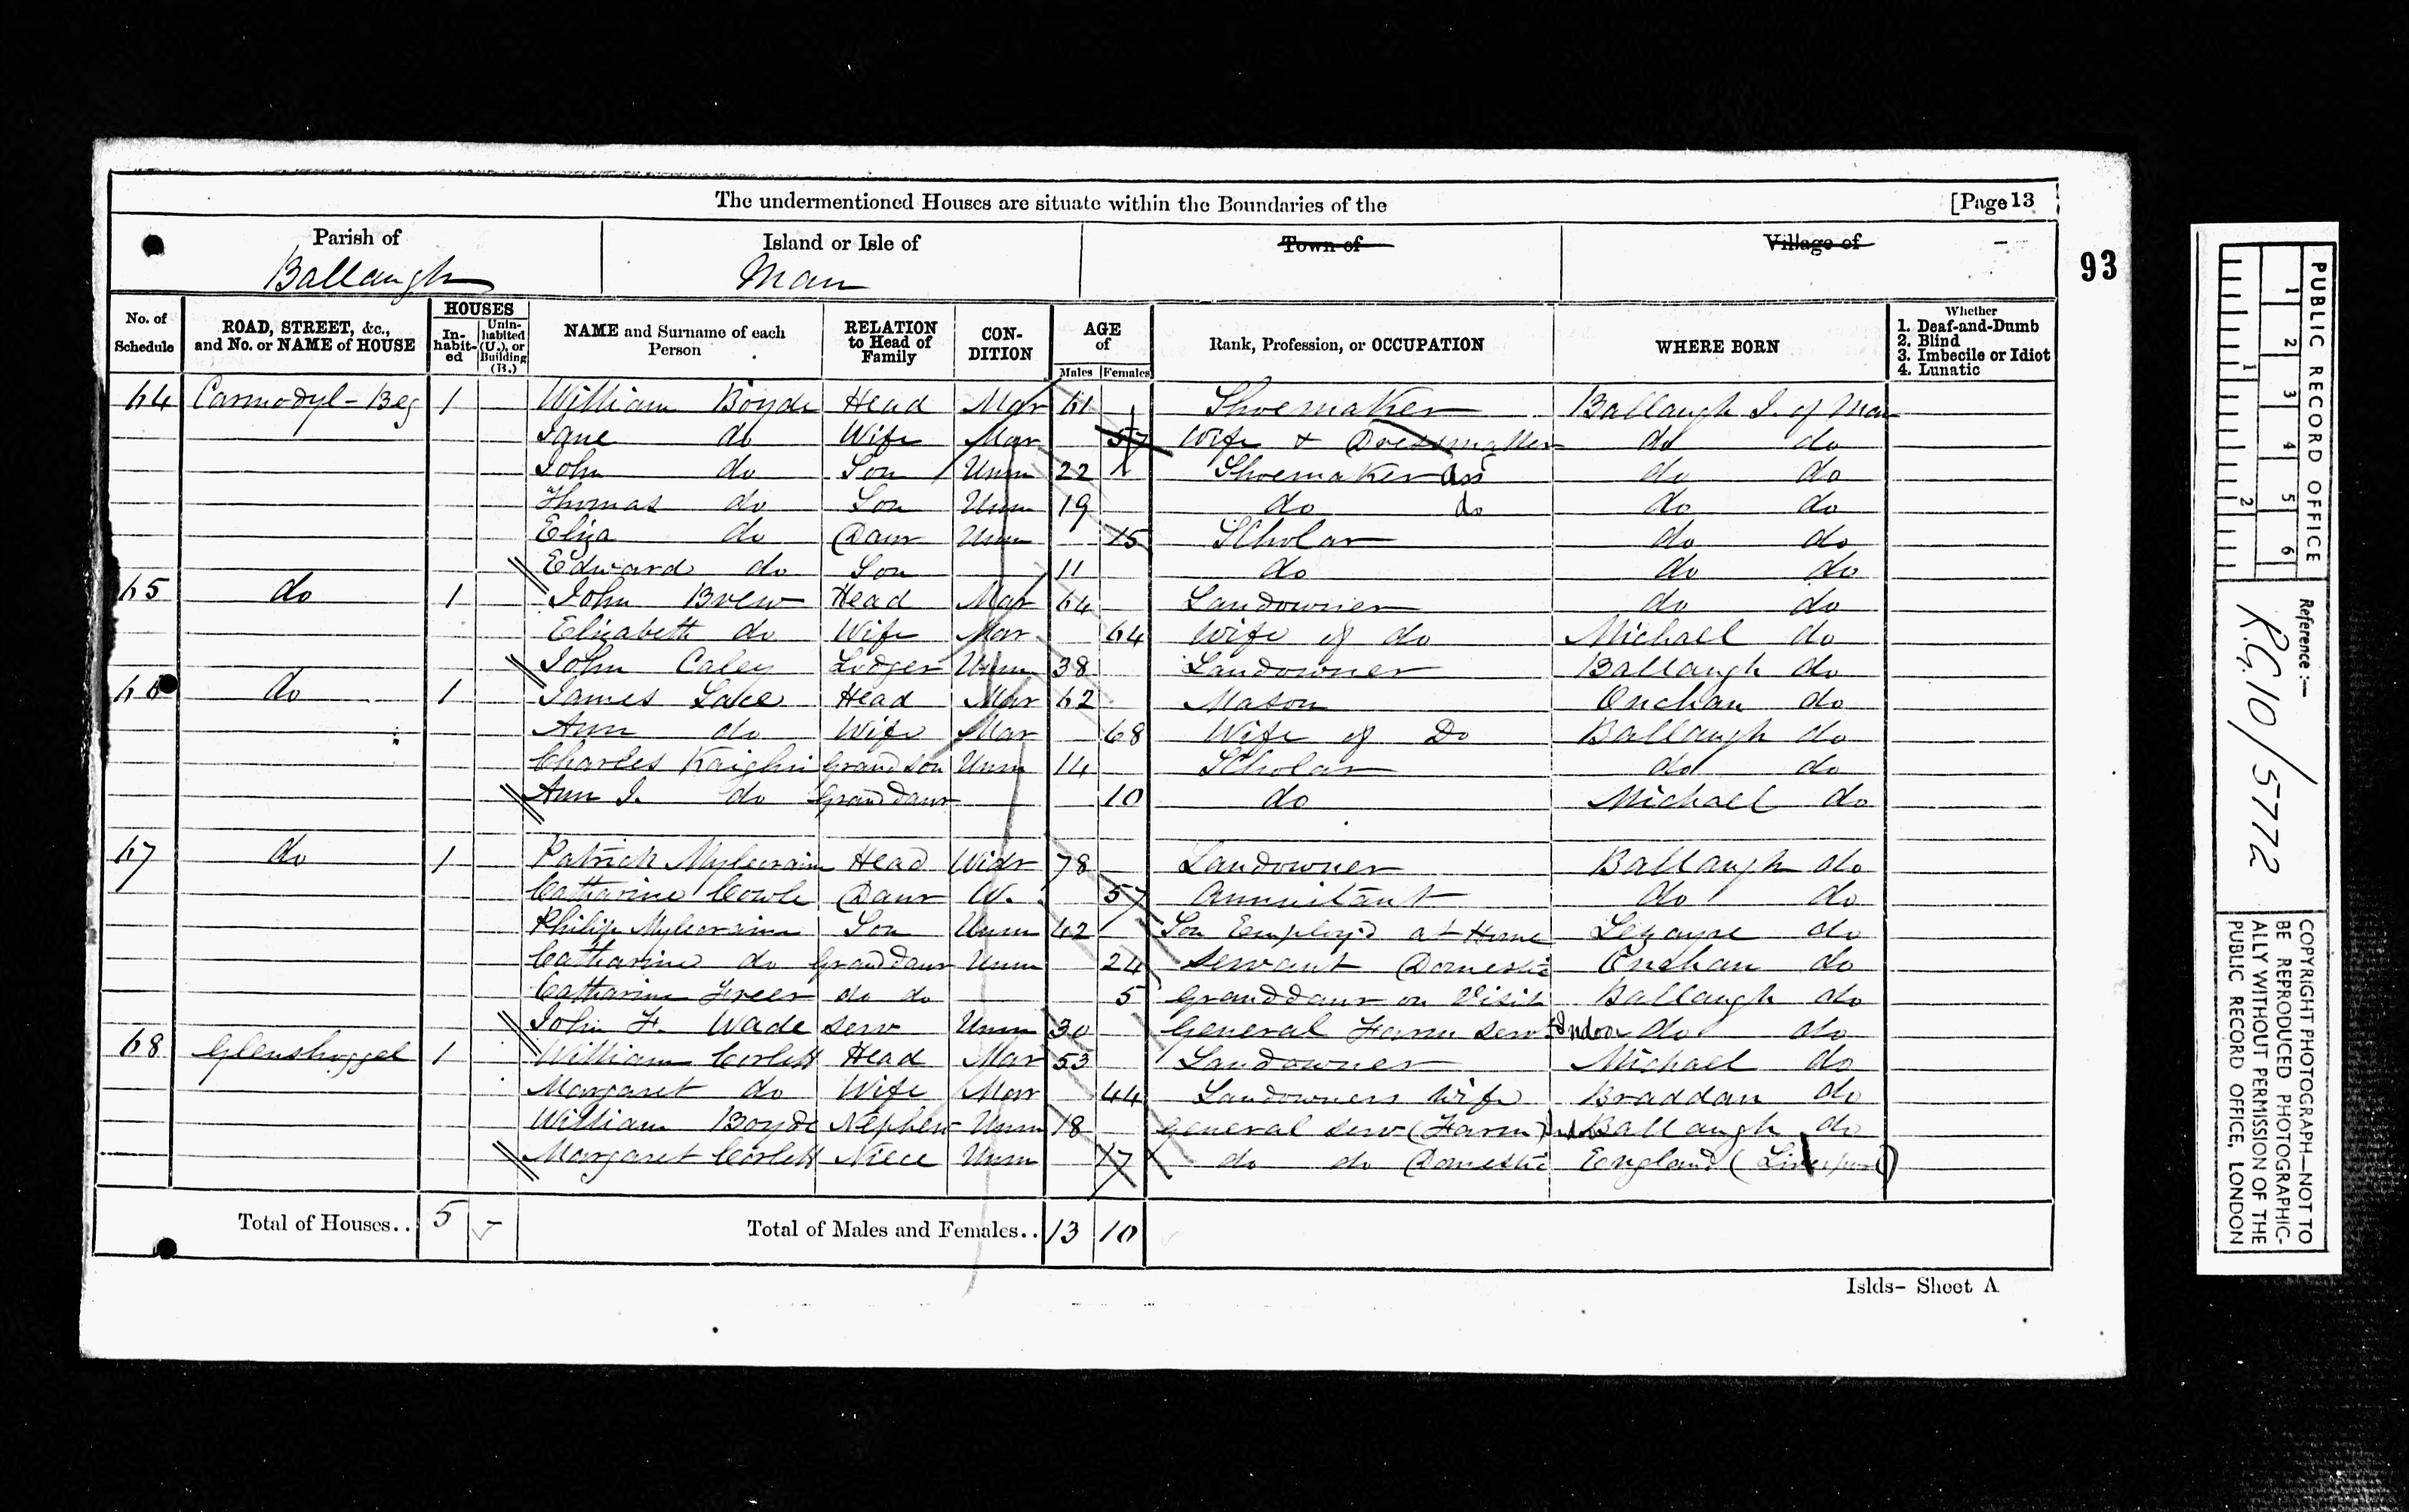 The undermentioned Houses are situate within the Boundaries of the [Page 13
Parish of Island or Isle of Town of Village of
Ballaugh Man
93
No. of Schedule ROAD, STREET, &c., and No. or NAME of HOUSE HOUSES In-habit-ed Unin-habited (U.), or Building (B.) NAME and Surname of each Person RELATION to Head of Family CON-DITION AGE of Males Females Rank, Profession, or OCCUPATION WHERE BORN Whether 1. Deaf-and-Dumb 2. Blind 3. Imbecile or Idiot 4. Lunatic
64 Carmodyl-Beg 1 William Boyde Head Mar 61 Shoemaker Ballaugh I. of Man
Jane do Wife Mar 57 Wife & Dressmaker do do
John do Son Unm 22 Shoemaker Ass do do
Thomas do Son Unm 19 do do do do
Eliza do Daur Unm 15 Scholar do do
Edward do Son 11 do do do
65 do 1 John Brew Head Mar 64 Landowner do do
Elizabeth do Wife Mar 64 Wife of do Michael do
John Caley Lodger Unm 38 Landowner Ballaugh do
66 do 1 James Lace Head Mar 62 Mason Onchan do
Ann do Wife Mar 68 Wife of Do Ballaugh do
Charles Kaighin Grandson Unm 14 Scholar do do
Ann J. do Granddaur 10 do Michael do
67 do 1 Patrick Mylecraine Head Widr 78 Landowner Ballaugh do
Catharine Cowle Daur W. 57 Annuitant do do
Philip Mylecraine Son Unm 42 Son Employ'd at Home Lezayre do
Catharine do Granddaur Unm 24 Servant Domestic Onchan do
Catharine Freer do do 5 Granddaur on Visit Ballaugh do
John F. Wade Serv Unm 30 General Farm Servt Indoor do do
68 Glenshoggel 1 William Corlett Head Mar 53 Landowner Michael do
Margaret do Wife Mar 44 Landowners Wife Braddan do
William Boyde Nephew Unm 18 General Serv (Farm) Ballaugh do
Margaret Corlett Niece Unm 17 do do Domestic England (Liverpool)
Total of Houses.. 5 – Total of Males and Females.. 13 10
Islds- Sheet A
PUBLIC RECORD OFFICE
1 2 3 4 5 6
1 2
Reference :-
R.G.10/5772
COPYRIGHT PHOTOGRAPH—NOT TO
BE REPRODUCED PHOTOGRAPHIC-
ALLY WITHOUT PERMISSION OF THE
PUBLIC RECORD OFFICE, LONDON